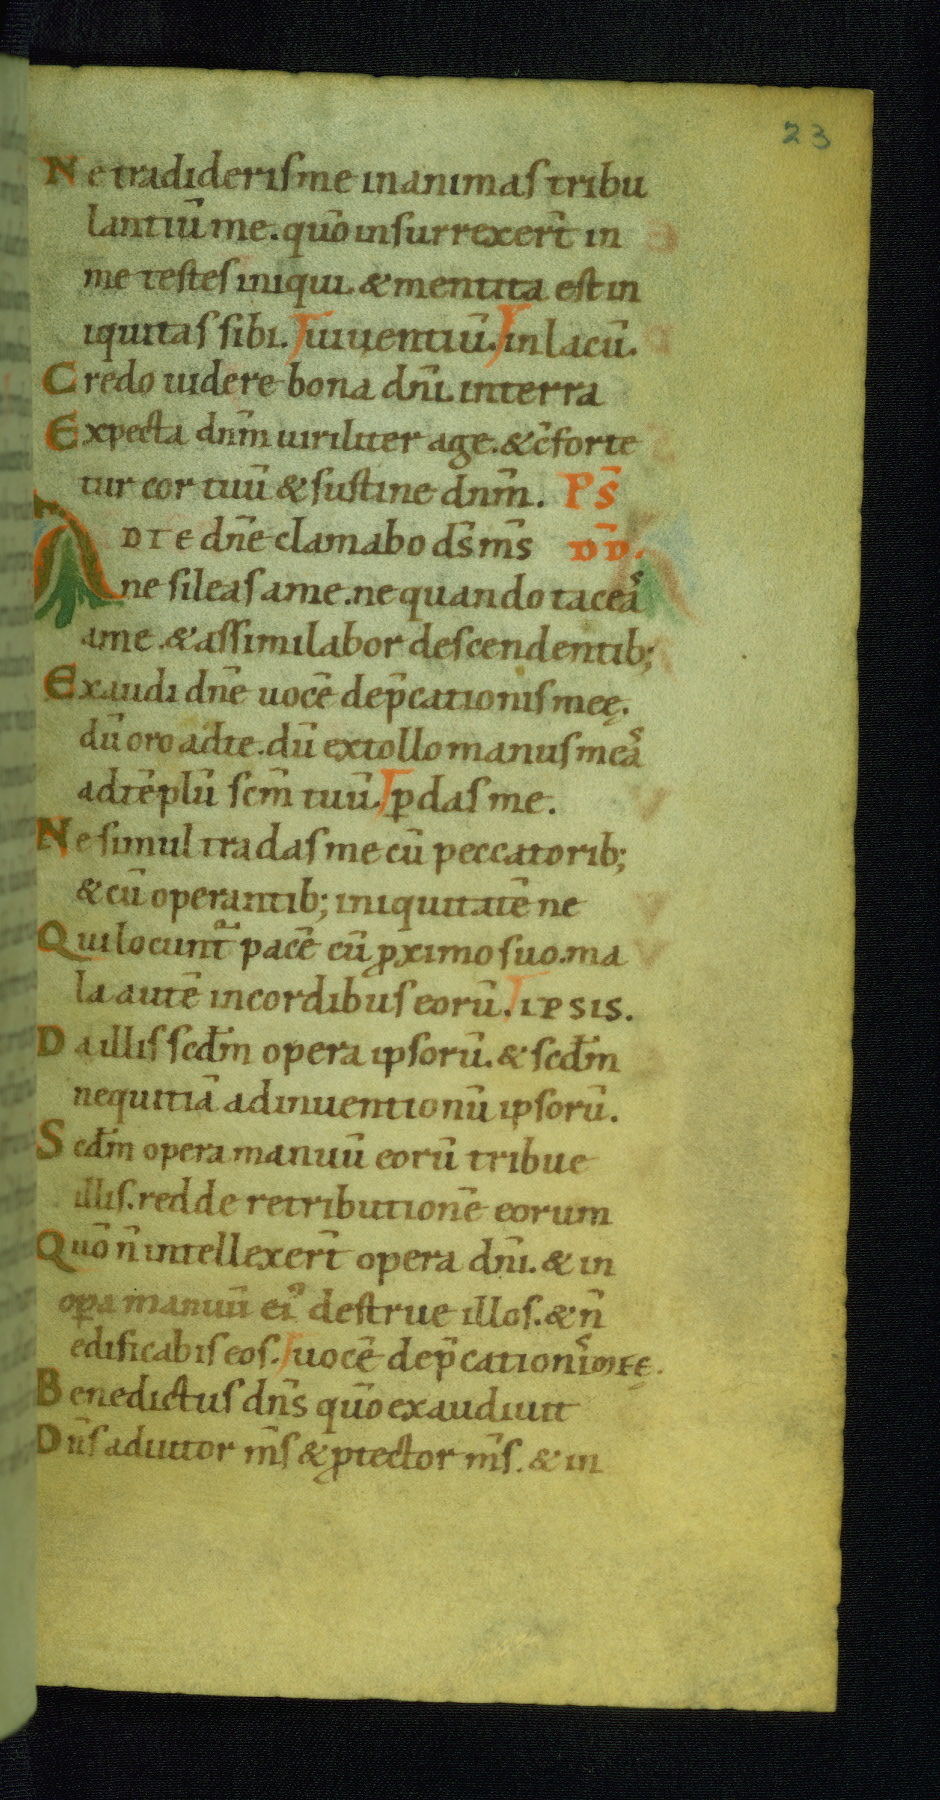 23
Ne tradideris me in animas tribu
lantiū me. quō insurrexer̄t in
me testes iniqui. & mentita est in
iquitas sibi. uiuentiū. in lacū.
Credo uidere bona dn̄i. in terra
Expecta dnm̄ uiriliter age. & c̄forte
tur cor tuū & sustine dnm̄. Ps̄
AD TE dn̄e clamabo ds̄ ms̄ DD̄.
ne sileas a me. ne quando taceas
a me. & assimilabor descendentib;
Exaudi dn̄e uocē dep̄cationis meę.
dū oro ad te. dū extollo manus meas
ad tēplū scm̄ tuū. ꝑdas me.
Ne simul tradas me cū peccatorib;
& cū operantib; iniquitatē ne
Qui locunt̄ pacē cū ꝓximo suo. ma
la autē in cordibus eorū. IPSIS.
Da illis scd̄m opera ipsorū. & scd̄m
nequitiā adinuentionū ipsorū.
Scd̄m opera manuū eorū tribue
illis. redde retributionē eorum
Quō n̄ intellexer̄t opera dn̄i. & in
oꝑa manuū ei᾿ destrue illos. & n̄
edificabis eos. uocē dep̄cationis meę.
Benedictus dn̄s quō exaudiuit
Dn̄s adiutor ms̄ & ꝓtector ms̄. & in